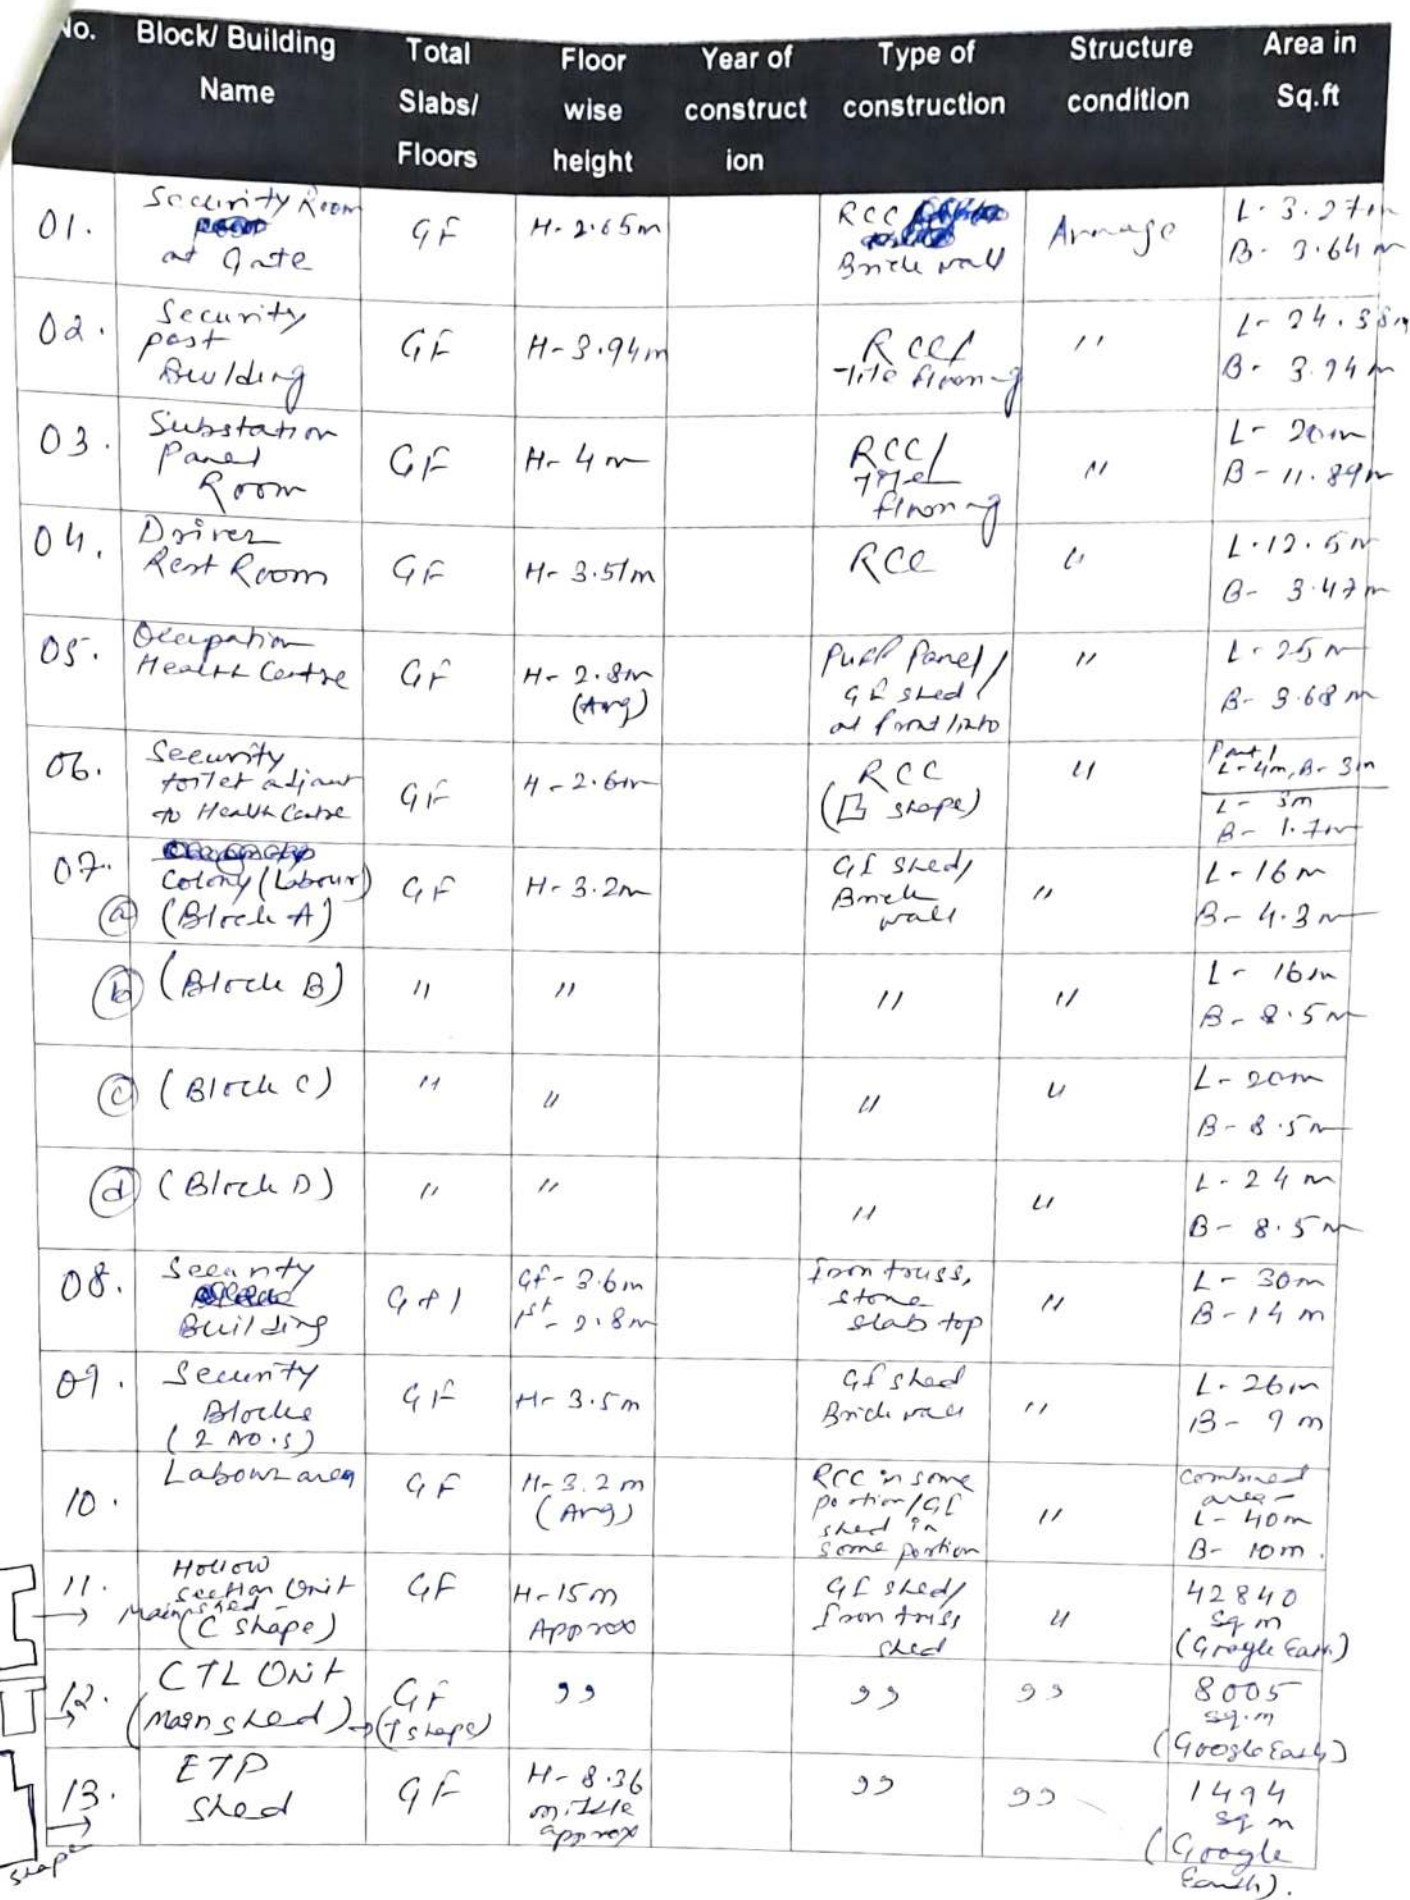 No. Block/ Building Name Total Slabs/ Floors Floor wise height Year of construct ion Type of construction Structure condition Area in Sq.ft
01. Security Room at Gate GF H-2.65m RCC Brick wall Average L-3.27m B-3.64m
02. Security post Building GF H-3.94m RCC/ Tile flooring " L-24.38m B-3.94m
03. Substation Panel Room GF H-4m RCC/ Tile flooring " L-20m B-11.89m
04. Driver Rest Room GF H-3.51m RCC " L-12.5m B-3.47m
05. Occupation Health Centre GF H-2.8m (Avg) Puff Panel/ GI shed/ at front " L-25m B-3.68m
06. Security toilet adjant to Health Centre GF H-2.6m RCC ( shape) " Part 1 L-4m, B-3m L-3m B-1.7m
07. Colony (Labour) GF H-3.2m GI shed/ Brick wall " L-16m B-4.3m
(a) (Block A)
(b) (Block B) " " " " L-16m B-8.5m
(c) (Block C) " " " " L-20m B-8.5m
(d) (Block D) " " " " L-24m B-8.5m
08. Security Building G+1 GF-3.6m 1st-2.8m Iron truss, stone slab top " L-30m B-14m
09. Security Blocks (2 NO.s) GF H-3.5m GI shed Brick wall " L-26m B-9m
10. Labour area GF H-3.2m (Avg) RCC in some portion/GI shed in some portion " Combined area- L-40m B-10m.
11. Hollow section Unit Main shed- (C shape) GF H-15m Approx GI shed/ Iron truss shed " 42840 sq m (Google Earth)
12. CTL Unit (Main shed) → GF (T shape) " " " 8005 sq.m (Google Earth)
13. ETP Shed GF H-8.36 middle approx " " 1494 sq m (Google Earth).
shape